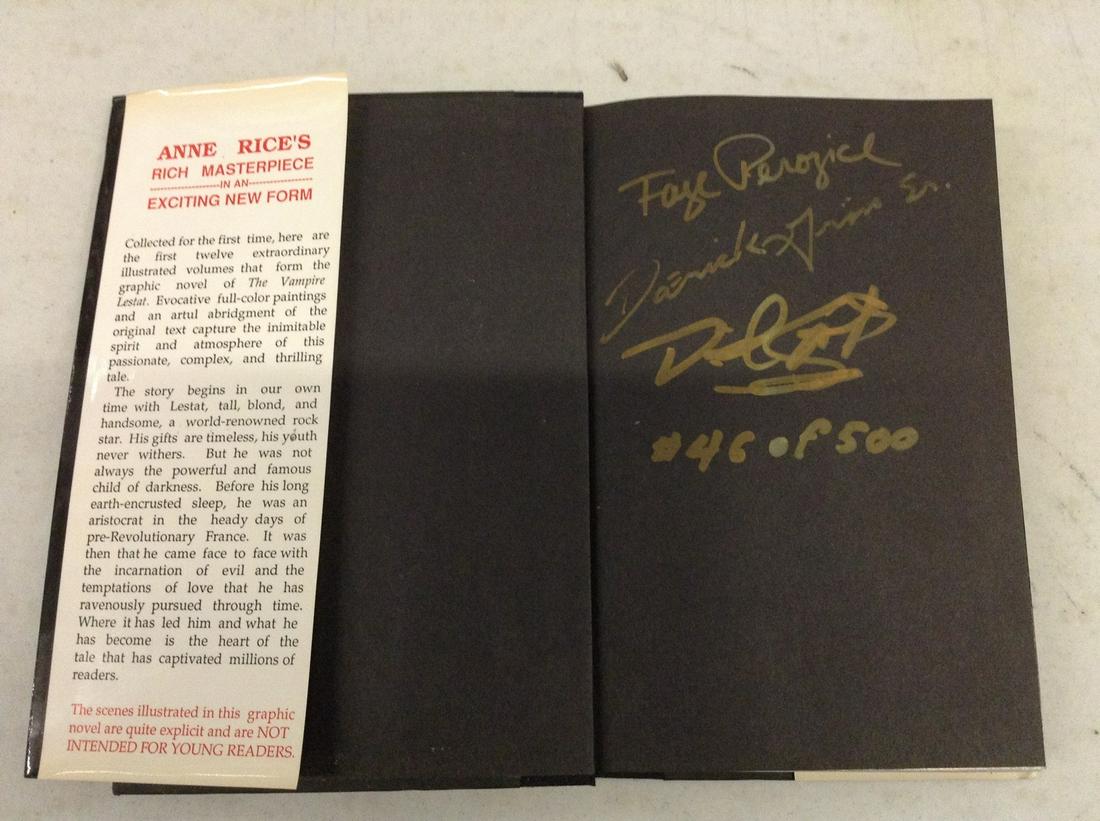 ANNE RICE'S
RICH MASTERPIECE
IN AN
EXCITING NEW FORM
Collected for the first time, here are
the first twelve extraordinary
illustrated volumes that form the
graphic novel of The Vampire
Lestat. Evocative full-color paintings
and an artul abridgment of the
original text capture the inimitable
spirit and atmosphere of this
passionate, complex, and thrilling
tale.
The story begins in our own
time with Lestat, tall, blond, and
handsome, a world-renowned rock
star. His gifts are timeless, his youth
never withers. But he was not
always the powerful and famous
child of darkness. Before his long
earth-encrusted sleep, he was an
aristocrat in the heady days of
pre-Revolutionary France. It was
then that he came face to face with
the incarnation of evil and the
temptations of love that he has
ravenously pursued through time.
Where it has led him and what he
has become is the heart of the
tale that has captivated millions of
readers.
The scenes illustrated in this graphic
novel are quite explicit and are NOT
INTENDED FOR YOUNG READERS.
Faye Perozich
#46 of 500